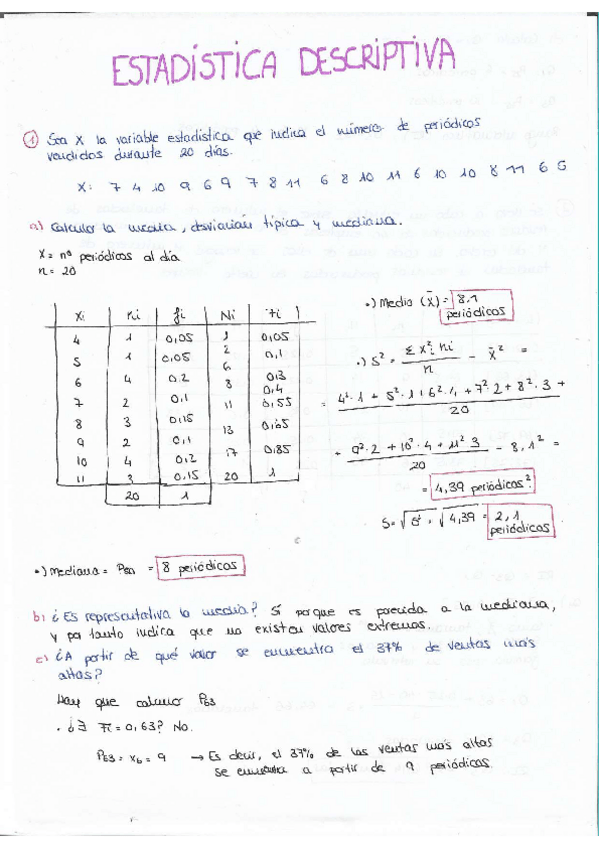 ESTADÍSTICA DESCRIPTIVA
1 Sea X la variable estadística que indica el número de periódicos
vendidos durante 20 días.
X: 7 4 10 9 6 9 7 8 11 6 8 10 11 6 10 10 8 11 6 5
a) Calcular la media, desviación típica y mediana.
X = nº periódicos al día
n = 20
xi ni fi Ni Fi
4 1 0,05 1 0,05
5 1 0,05 2 0,1
6 4 0,2 6 0,3
7 2 0,1 8 0,4
8 3 0,15 11 0,55
9 2 0,1 13 0,65
10 4 0,2 17 0,85
11 3 0,15 20 1
20 1
•) Media (x̄) = 8.1 periódicos
•) S² = Σ xi² ni / n - x̄² =
= 4²·1 + 5²·1 + 6²·4 + 7²·2 + 8²·3 + / 20
+ 9²·2 + 10²·4 + 11²·3 / 20 - 8,1² =
= 4,39 periódicos²
S = √S² = √4,39 = 2,1 periódicos
•) Mediana = P50 = 8 periódicos
b) ¿Es representativa la media? Sí porque es parecida a la mediana,
y por tanto indica que no existen valores extremos.
c) ¿A partir de qué valor se encuentra el 37% de ventas más
altas?
Hay que calcular P63
· ¿∃ Fi = 0,63? No.
P63 = x6 = 9 → Es decir, el 37% de las ventas más altas
se encuentra a partir de 9 periódicos.